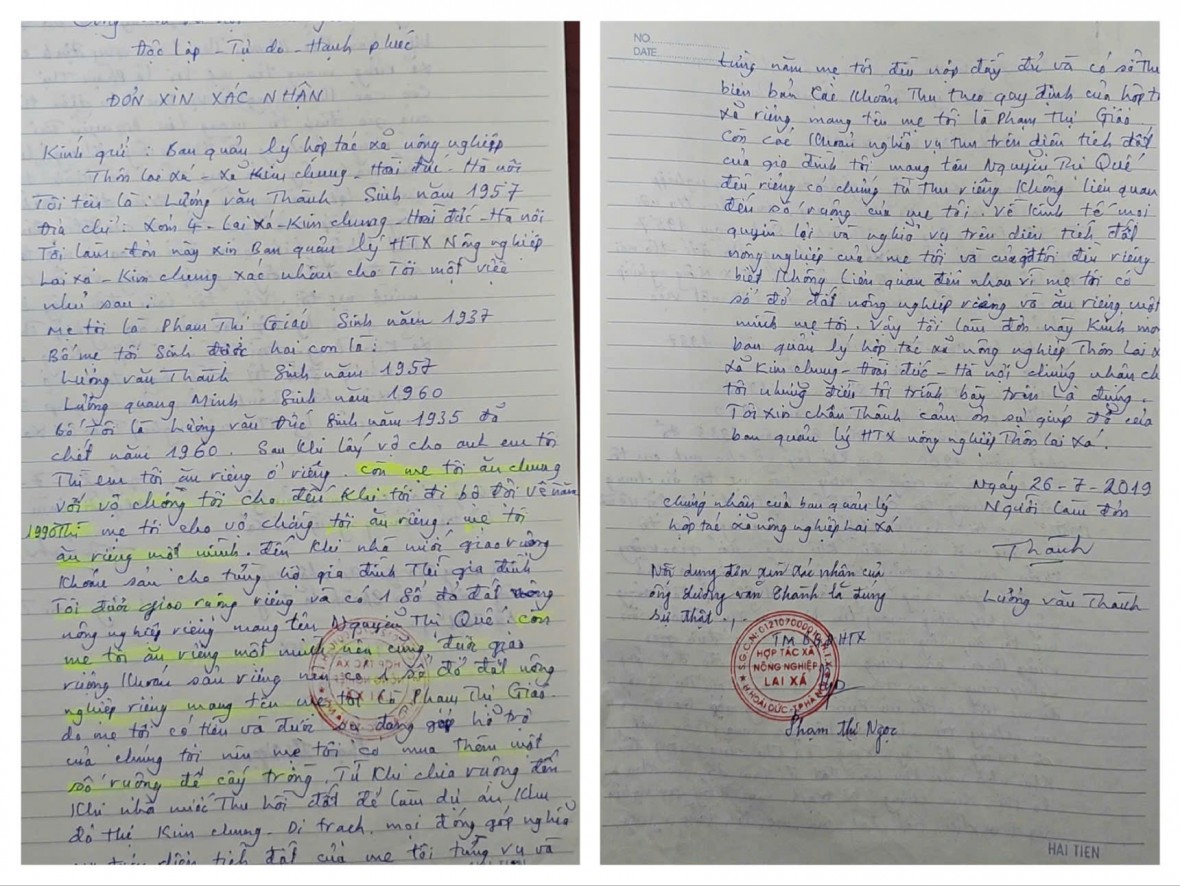 Độc lập - Tự do - Hạnh phúc
ĐƠN XIN XÁC NHẬN
Kính gửi : Ban quản lý hợp tác xã nông nghiệp
Thôn Lai Xá - Xã Kim chung - Hoài đức - Hà nội
Tôi tên là : Lương văn Thành Sinh năm 1957
Địa chỉ : Xóm 4 - Lai Xá - Kim chung - Hoài đức - Hà nội
Tôi làm đơn này xin Ban quản lý HTX Nông nghiệp
Lai xá - Kim chung xác nhận cho Tôi một việc
như sau :
Mẹ tôi là Phạm Thị Giáo Sinh năm 1937
Bố mẹ tôi Sinh được hai con là :
Lương văn Thành Sinh năm 1957
Lương quang Minh Sinh năm 1960
Bố Tôi là Lương văn Đức Sinh năm 1935 đã
chết năm 1960. Sau khi lấy vợ cho anh em tôi
Thì em tôi ăn riêng ở riêng. còn mẹ tôi ăn chung
với vợ chồng tôi cho đến khi tôi đi bộ đội về năm
1990 thì mẹ tôi cho vợ chồng tôi ăn riêng. mẹ tôi
ăn riêng một mình. đến khi nhà nước giao ruộng
khoán sản cho từng hộ gia đình Thì gia đình
Tôi được giao ruộng riêng và có 1 Sổ đỏ đất
nông nghiệp riêng mang tên Nguyễn Thị Quế. còn
mẹ tôi ăn riêng một mình nên cũng được giao
ruộng khoán sản riêng nên có 1 sổ đỏ đất nông
nghiệp riêng mang tên mẹ tôi là Phạm Thị Giáo
do mẹ tôi có tiền và được sự đóng góp hỗ trợ
của chúng tôi nên mẹ tôi có mua thêm một
số ruộng để cấy trồng. Từ khi chia ruộng đến
khi nhà nước Thu hồi đất để làm dự án khu
đô thị Kim chung - Di trạch, mọi đóng góp nghĩa
vụ trên diện tích đất của mẹ tôi từng vụ và
NO.
DATE
từng năm mẹ tôi đều nộp đầy đủ và có sổ thu
biên bản các khoản Thu theo quy định của hợp t
xã riêng mang tên mẹ tôi là Phạm Thị Giáo
Còn các khoản nghĩa vụ thu trên diện tích đất
của gia đình tôi mang tên Nguyễn Thị Quế
đều riêng có chứng từ thu riêng không liên quan
đến số ruộng của mẹ tôi. Về kinh tế mọi
quyền lợi và nghĩa vụ trên diện tích đất
nông nghiệp của mẹ tôi và của gđ tôi đều riêng
biệt không Liên quan đến nhau vì mẹ tôi có
sổ đỏ đất nông nghiệp riêng và ăn riêng một
mình mẹ tôi. Vậy tôi làm đơn này kính mo
ban quản lý hợp tác xã nông nghiệp Thôn Lai x
xã Kim chung - Hoài đức - Hà nội chứng nhận ch
tôi những điều tôi trình bày trên Là đúng.
Tôi xin chân Thành cảm ơn sự giúp đỡ của
ban quản lý HTX nông nghiệp Thôn Lai Xá.
Ngày 26 - 7 - 2019
chứng nhận của ban quản lý
hợp tác xã nông nghiệp Lai Xá
Người làm đơn
Thành
Lương văn Thành
Nội dung đơn xin xác nhận của
ông Lương văn Thành là đúng
sự thật
TM BQL HTX
HỢP TÁC XÃ
NÔNG NGHIỆP
LAI XÁ
H.HOÀI ĐỨC - TP HÀ NỘI
Phạm Thị Ngọc
HAI TIEN